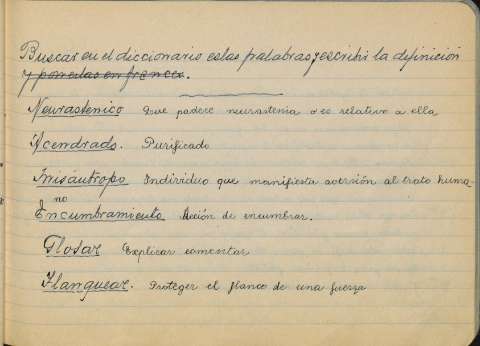 Buscar en el diccionario estas palabras y escribir la definición
y ponerlas en frances.
Neurasténico Que padece neurastenia o es relativo a ella
Acendrado. Purificado
Misántropo Individuo que manifiesta aversión al trato huma-
no
Encumbramiento Acción de encumbrar.
Glosar Explicar comentar
Flanquear. Proteger el flanco de una fuerza